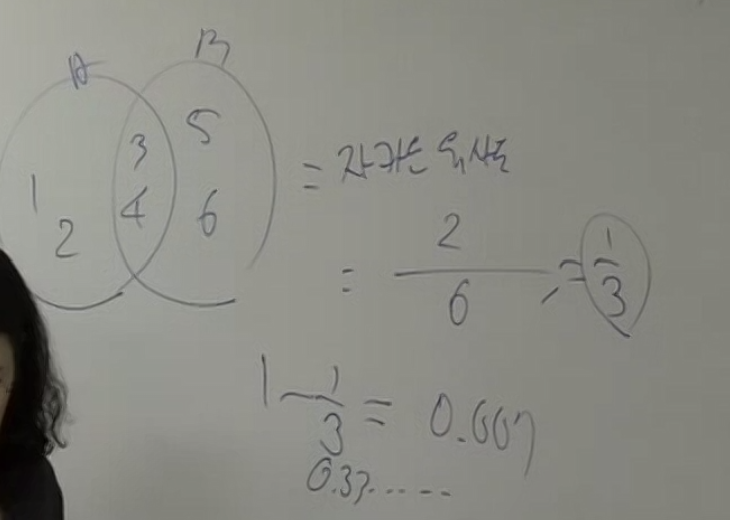 A B
1 2 3 4 5 6
= 자카드 유사도
= 2/6 = 1/3
1 - 1/3 = 0.667
0.33.....